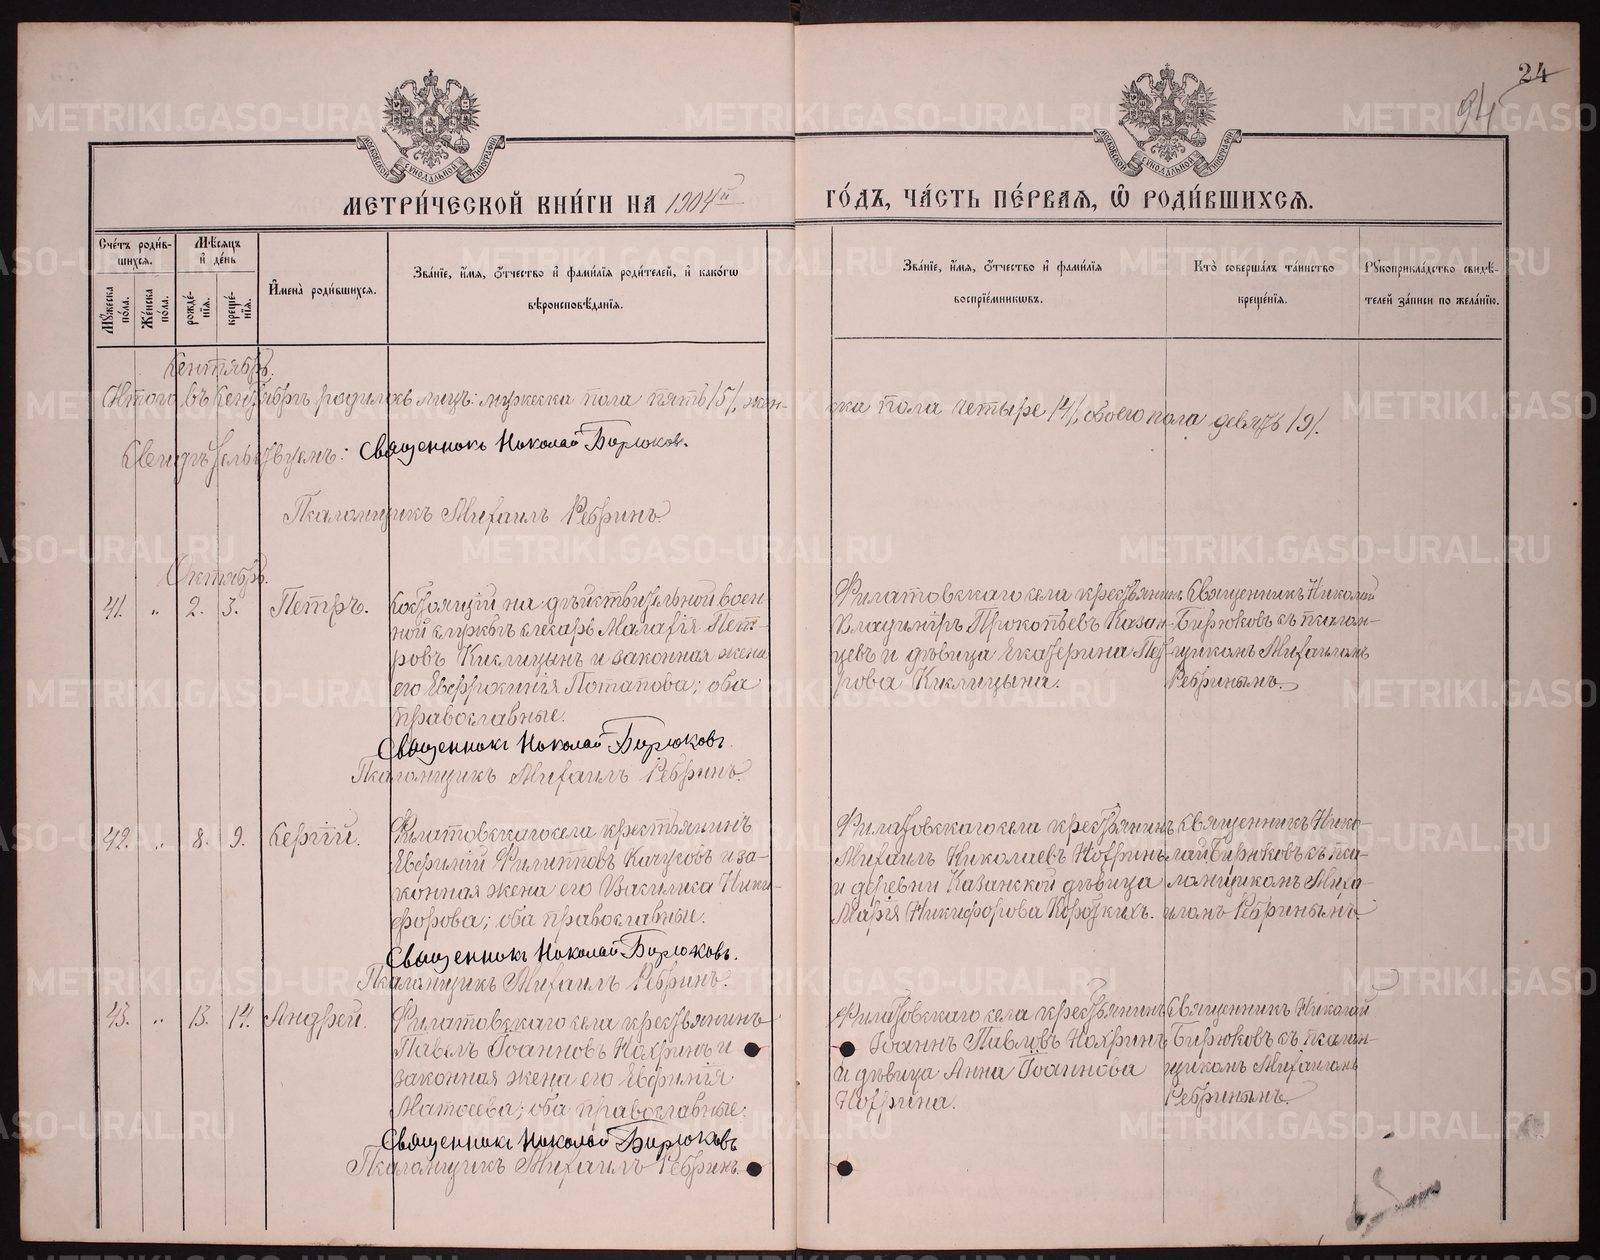 24
94
МЕТРИ́ЧЕСКОЙ КНИ́ГИ НА 1904й ГО́ДЪ, ЧА́СТЬ ПЕ́РВАѦ, Ѡ РОДИ́ВШИХСѦ.
Сче́тъ роди́в-
шихсѧ.
Мѣ́сѧцъ
и де́нь
Мꙋ́жеска
по́ла.
Же́нска
по́ла.
рожде́-
нїѧ.
креще́-
нїѧ.
Имена̀ роди́вшихсѧ.
Зва́нїе, и́мѧ, ѻ́тчество и фами́лїѧ роди́телей, и како́гѡ
вѣроисповѣ́данїѧ.
Зва́нїе, и́мѧ, ѻ́тчество и фами́лїѧ
воспрїе́мниковъ.
Кто̀ соверша́лъ та́инство
креще́нїѧ.
Рꙋкоприкла́дство свидѣ́-
телей за́писи по жела́нїю.
Сентябрь.
Итого въ Сентябрѣ родилось лицъ: мужеска пола пять /5/, жен-
ска пола четыре /4/, обоего пола девять /9/.
Свидѣтельствуемъ: Священникъ Николай Бирюковъ.
Псаломщикъ Михаилъ Ребринъ
Октябрь.
41. " 2. 3. Петръ.
Состоящій на дѣйствительной воен-
ной службѣ слесарь Малафія Пет-
ровъ Кислицынъ и законная жена
его Евфросинія Потапова; оба
православные.
Священникъ Николай Бирюковъ.
Псаломщикъ Михаилъ Ребринъ.
Филатовскаго села крестьянинъ
Владиміръ Прокопьевъ Казан-
цевъ и дѣвица Екатерина Пет-
рова Кислицына.
Священникъ Николай
Бирюковъ съ псалом-
щикомъ Михаиломъ
Ребринымъ.
42. " 8. 9. Сергій.
Филатовскаго села крестьянинъ
Евфимій Филипповъ Качусовъ и за-
конная жена его Василиса Ники-
форова; оба православные.
Священникъ Николай Бирюковъ.
Псаломщикъ Михаилъ Ребринъ.
Филатовскаго села крестьянинъ
Михаилъ Николаевъ Нохринъ
и деревни Казанской дѣвица
Марія Никифорова Короткихъ.
Священникъ Нико-
лай Бирюковъ съ пса-
ломщикомъ Миха-
иломъ Ребринымъ.
43. " 13. 14. Андрей.
Филатовскаго села крестьянинъ
Павелъ Іоанновъ Нохринъ и
законная жена его Евфимія
Матѳеева; оба православные.
Священникъ Николай Бирюковъ
Псаломщикъ Михаилъ Ребринъ.
Филатовскаго села крестьянинъ
Іоаннъ Павловъ Нохринъ
и дѣвица Анна Іоаннова
Нохрина.
Священникъ Николай
Бирюковъ съ псалом-
щикомъ Михаиломъ
Ребринымъ.
METRIKI.GASO-URAL.RU